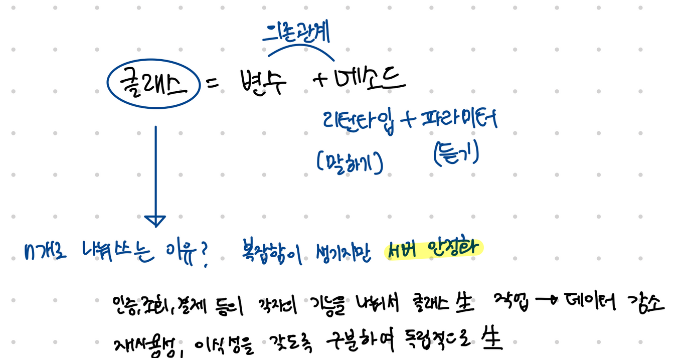 의존관계
클래스 = 변수 + 메소드
리턴타입 + 파라미터
(말하기) (듣기)
n개로 나눠쓰는 이유? 복잡함이 생기지만 서버 안정화
인증,조회,결제 등의 각자의 기능을 나눠서 클래스 生 작업 → 데이터 감소
재사용성, 이식성을 갖도록 구분하여 독립적으로 生